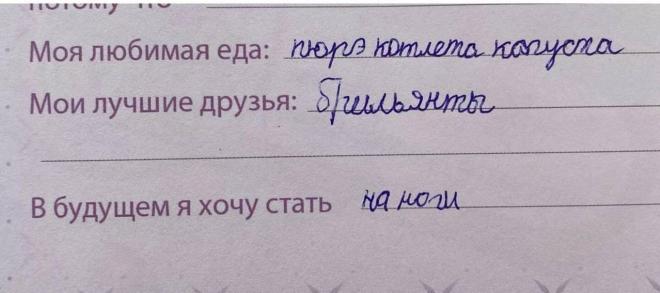 потому что
Моя любимая еда: пюрэ котлета капуста
Мои лучшие друзья: бриильянты
В будущем я хочу стать на ноги